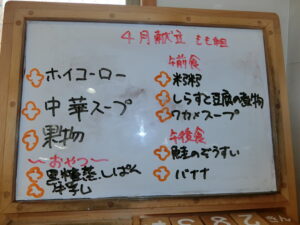 4月献立 もも組
ホイコーロー
中華スープ
果物
〜おやつ〜
黒糖蒸しぱん
牛乳
午前食
粥
しらすと豆腐の煮物
ワカメスープ
午後食
鮭のぞうすい
バナナ